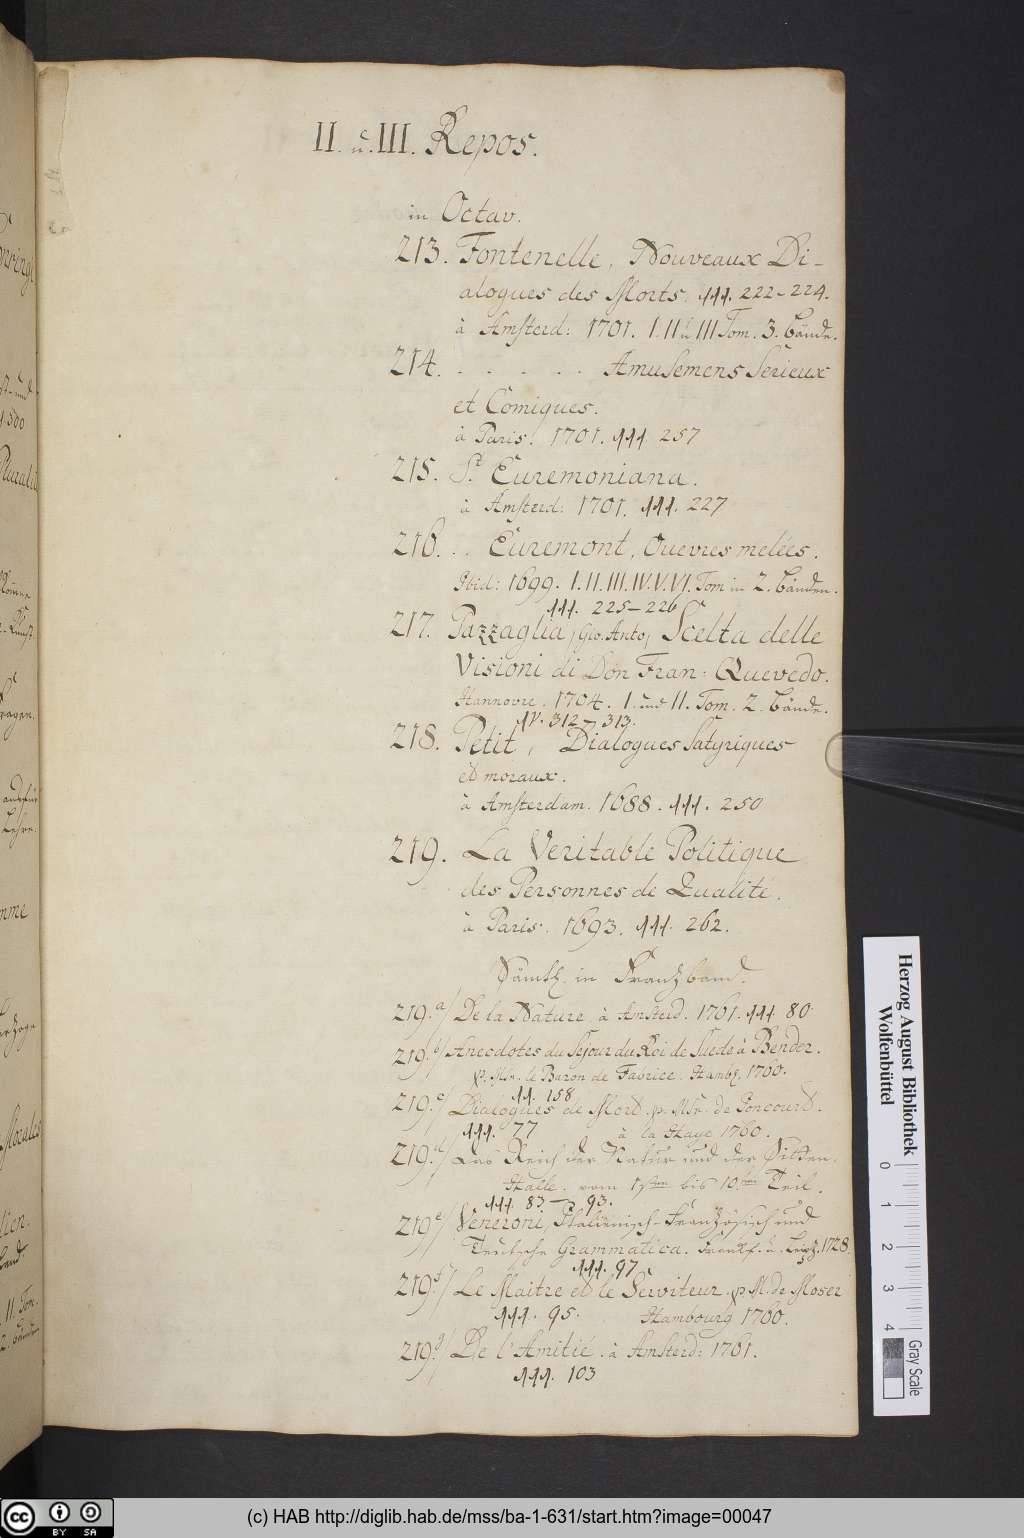 II. u. III. Repos.
in Octav.
213. Fontenelle, Nouveaux Di-
alogues des Morts. 222-224.
à Amsterd: 1701. I. II u III Tom. 3. Bände.
214. . . . . . Amusemens Serieux
et Comiques.
à Paris. 1701. 257
215. St. Euremoniana.
à Amsterd: 1701. 227
216. . . Euremont, Ouevres melées.
Ibid: 1699. I. II. III. IV. V. VI. Tom in 2. Bänden.
225-226
217. Pazzaglia, Gio. Anto, Scelta delle
Visioni di Don Fran: Quevedo.
Hannovre. 1704. I. und II. Tom. 2. Bände.
IV. 312-313.
218. Petit, Dialogues Satyriques
et moraux.
à Amsterdam. 1688. 250
219. La Veritable Politique
des Personnes de Qualité.
à Paris. 1693. 262.
Sämtl. in Franzband.
219.a/ De la Nature, à Amsterd. 1761. 80
219.b/ Anecdotes du Sejour du Roi de Suede à Bender.
p. Mr. le Baron de Fabrice. Hambg. 1760.
158
219.c/ Dialogues de Mord. p. Mr. de Joncourt.
77 à la Haye 1760.
219.d/ Das Reich der Natur und der Sitten.
Halle. vom 1sten bis 10ten Teil.
83-93.
219.e/ Veneroni, Italiänisch-Französisch und
Teutsche Grammatica. Frankf. u. Leipz. 1728.
97
219.f/ Le Maitre et le Serviteur. p. M. de Moser
95. Hambourg 1760.
219.g/ De l'Amitié. à Amsterd: 1761.
103
Herzog August Bibliothek
Wolfenbüttel
0 1 2 3 4
Gray Scale
cc BY SA
(c) HAB http://diglib.hab.de/mss/ba-1-631/start.htm?image=00047